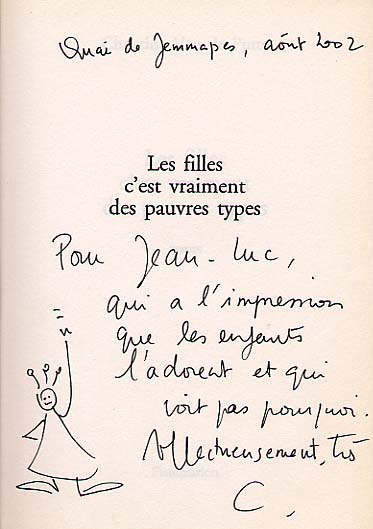 Quai de Jemmapes, août 2002
Les filles
c'est vraiment
des pauvres types
Pour Jean-Luc,
qui a l'impression
que les enfants
l'adorent et qui
voit pas pourquoi.
Affectueusement, très
C,